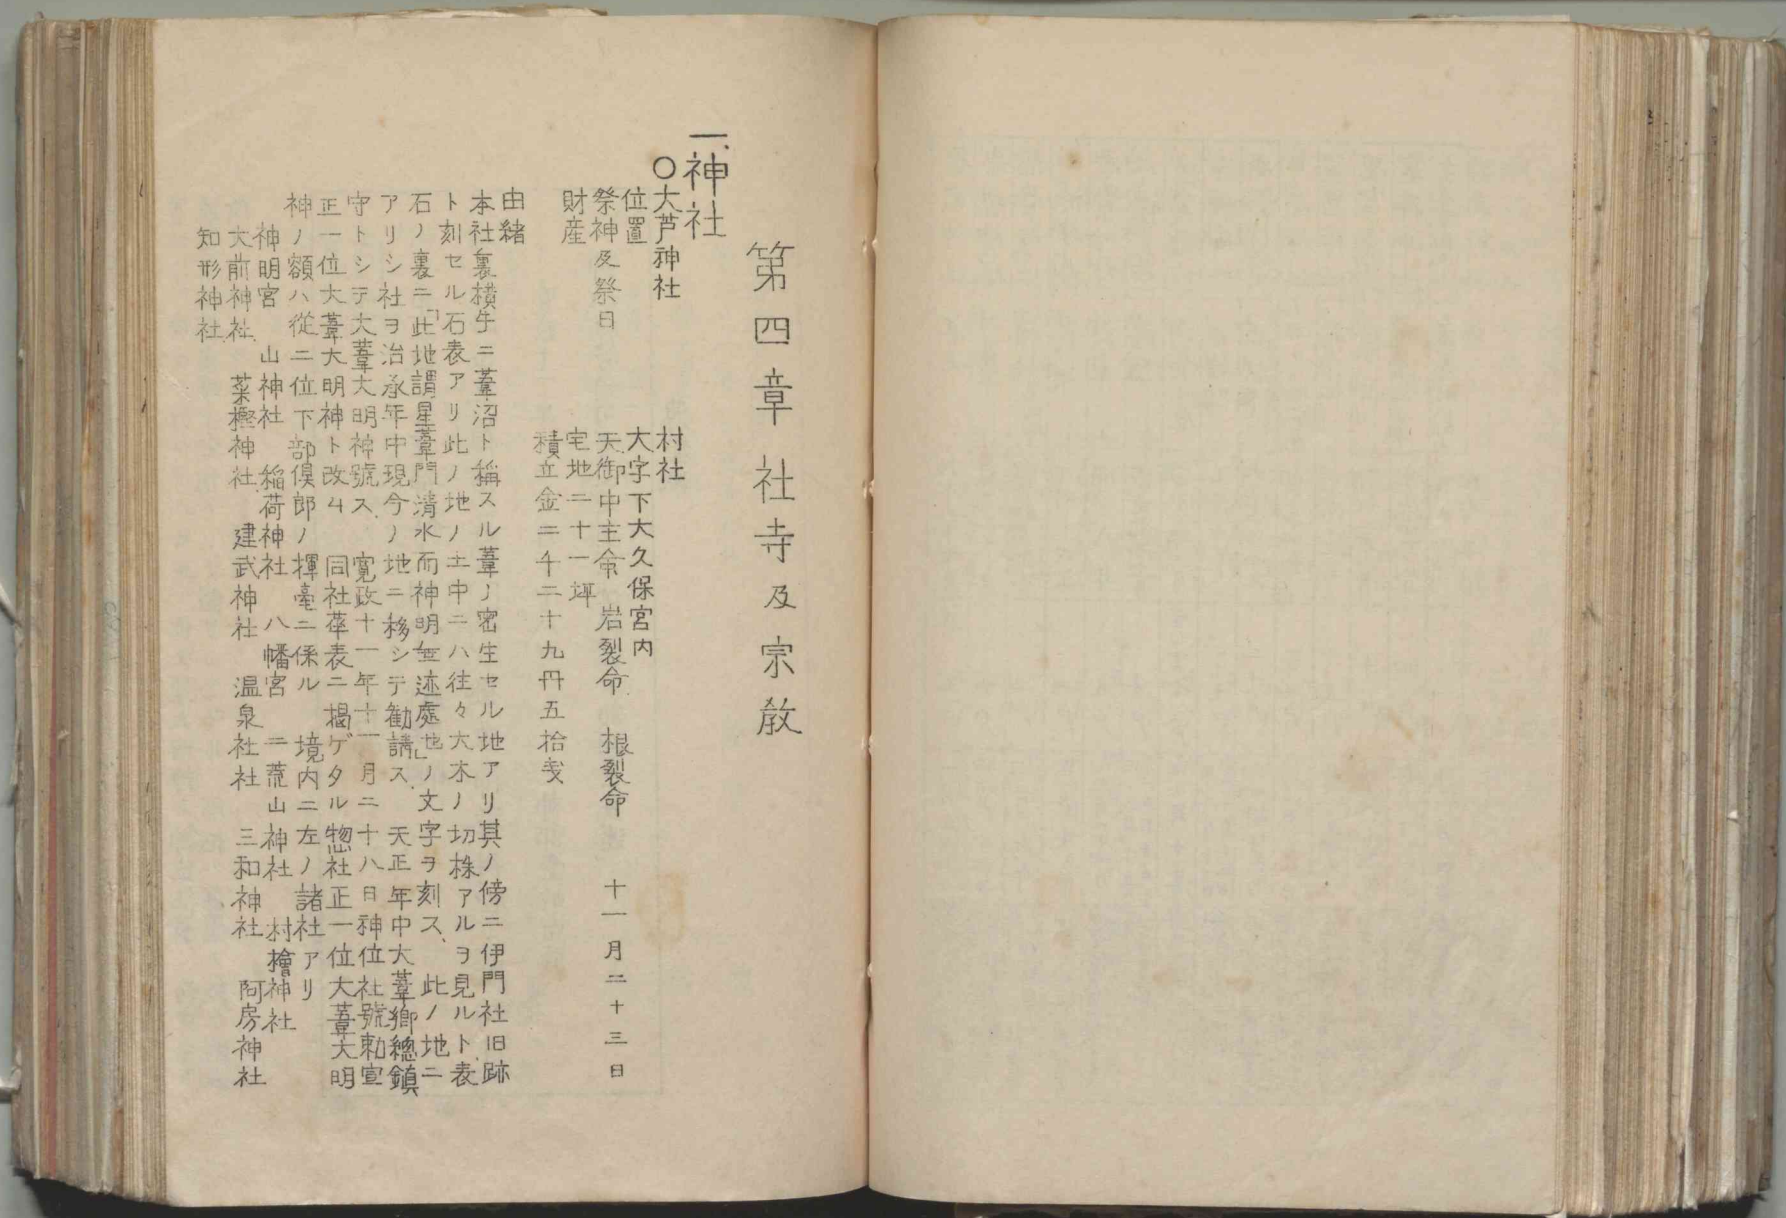 第四章 社寺及宗教
一、神社
〇大芦神社 村社
位置 大字下大久保宮内
祭神及祭日 天御中主命 岩裂命 根裂命 十一月二十三日
財産 宅地二十一坪
積立金二千二十九円五拾戋
由緒
本社裏横手ニ葦沼ト稱スル葦ノ密生セル地アリ其ノ傍ニ伊門社旧跡
ト刻セル石表アリ此ノ地ノ土中ニハ往々大木ノ切株アルヲ見ルト、表
石ノ裏ニ「此地謂星葦門清水而神明垂迹處也」ノ文字ヲ刻ス、此ノ地ニ
アリシ社ヲ治承年中現今ノ地ニ移シテ勧請ス、天正年中大葦郷總鎮
守トシテ大葦大明神號ス、寛政十一年十一月二十八日神位社號勅宣
正一位大葦大明神ト改ム 同社華表ニ掲ゲタル惣社正一位大葦大明
神ノ額ハ従二位下部倶郎ノ揮毫ニ係ル 境内ニ左ノ諸社アリ
神明宮 山神社 稲荷神社 八幡宮 二荒山神社 村檜神社
大前神社 菜樫神社 建武神社 温泉社社 三和神社 阿房神社
知形神社